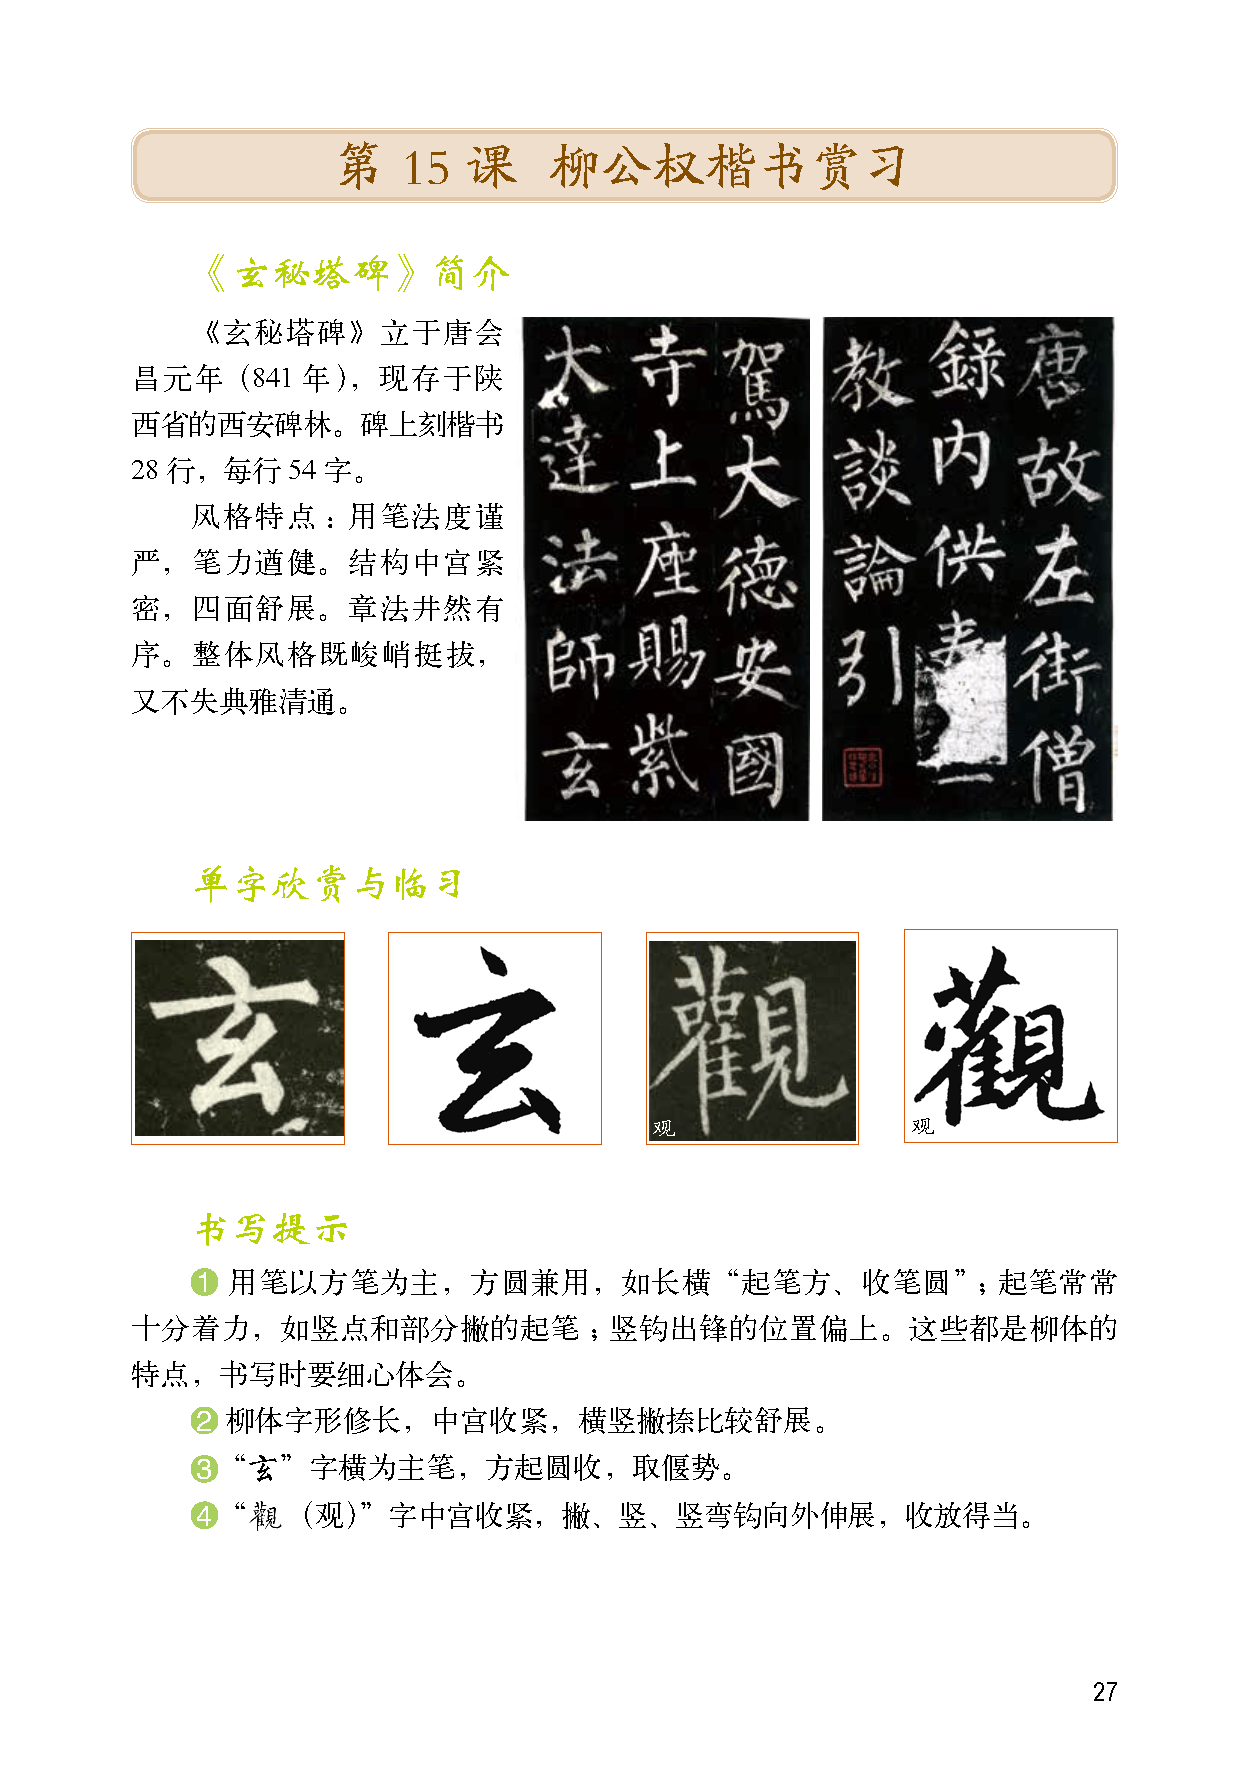 第 15 课 柳公权楷书赏习
《玄秘塔碑》简介
《玄秘塔碑》立于唐会
昌元年（841 年），现存于陕
西省的西安碑林。碑上刻楷书
28 行，每行 54 字。
风格特点：用笔法度谨
严，笔力遒健。结构中宫紧
密，四面舒展。章法井然有
序。整体风格既峻峭挺拔，
又不失典雅清通。
唐故左街僧
錄内供奉
一
教談論引
駕大德安國
寺上座賜紫
大達法師玄
单字欣赏与临习
玄
玄
觀
观
觀
观
书写提示
① 用笔以方笔为主，方圆兼用，如长横“起笔方、收笔圆”；起笔常常
十分着力，如竖点和部分撇的起笔；竖钩出锋的位置偏上。这些都是柳体的
特点，书写时要细心体会。
② 柳体字形修长，中宫收紧，横竖撇捺比较舒展。
③“玄”字横为主笔，方起圆收，取偃势。
④“觀（观）”字中宫收紧，撇、竖、竖弯钩向外伸展，收放得当。
27